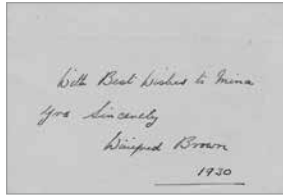 With Best Wishes to Mina
Yrs Sincerely
Winifred Brown
1930